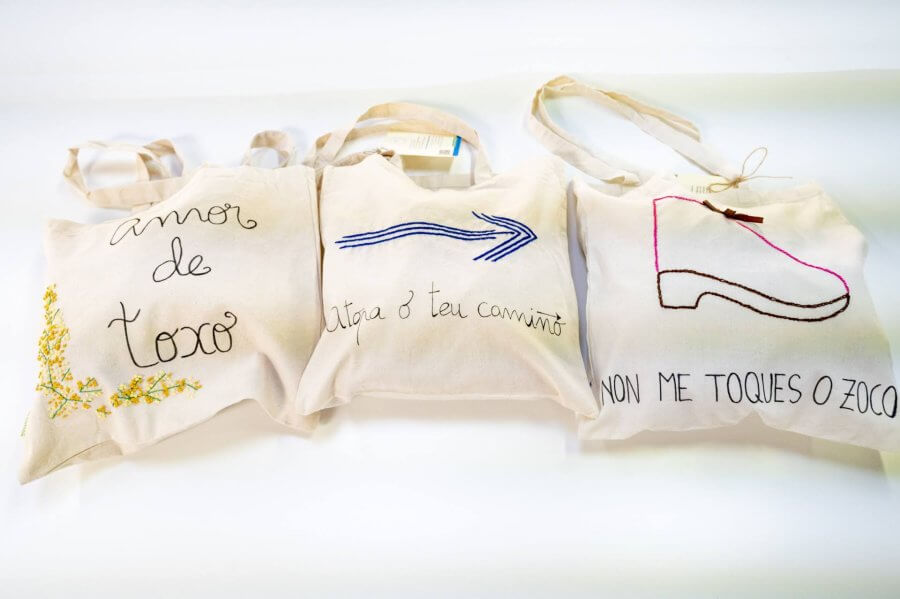 amor
de
toxo
atopa o teu camiño
NON ME TOQUES O ZOCO